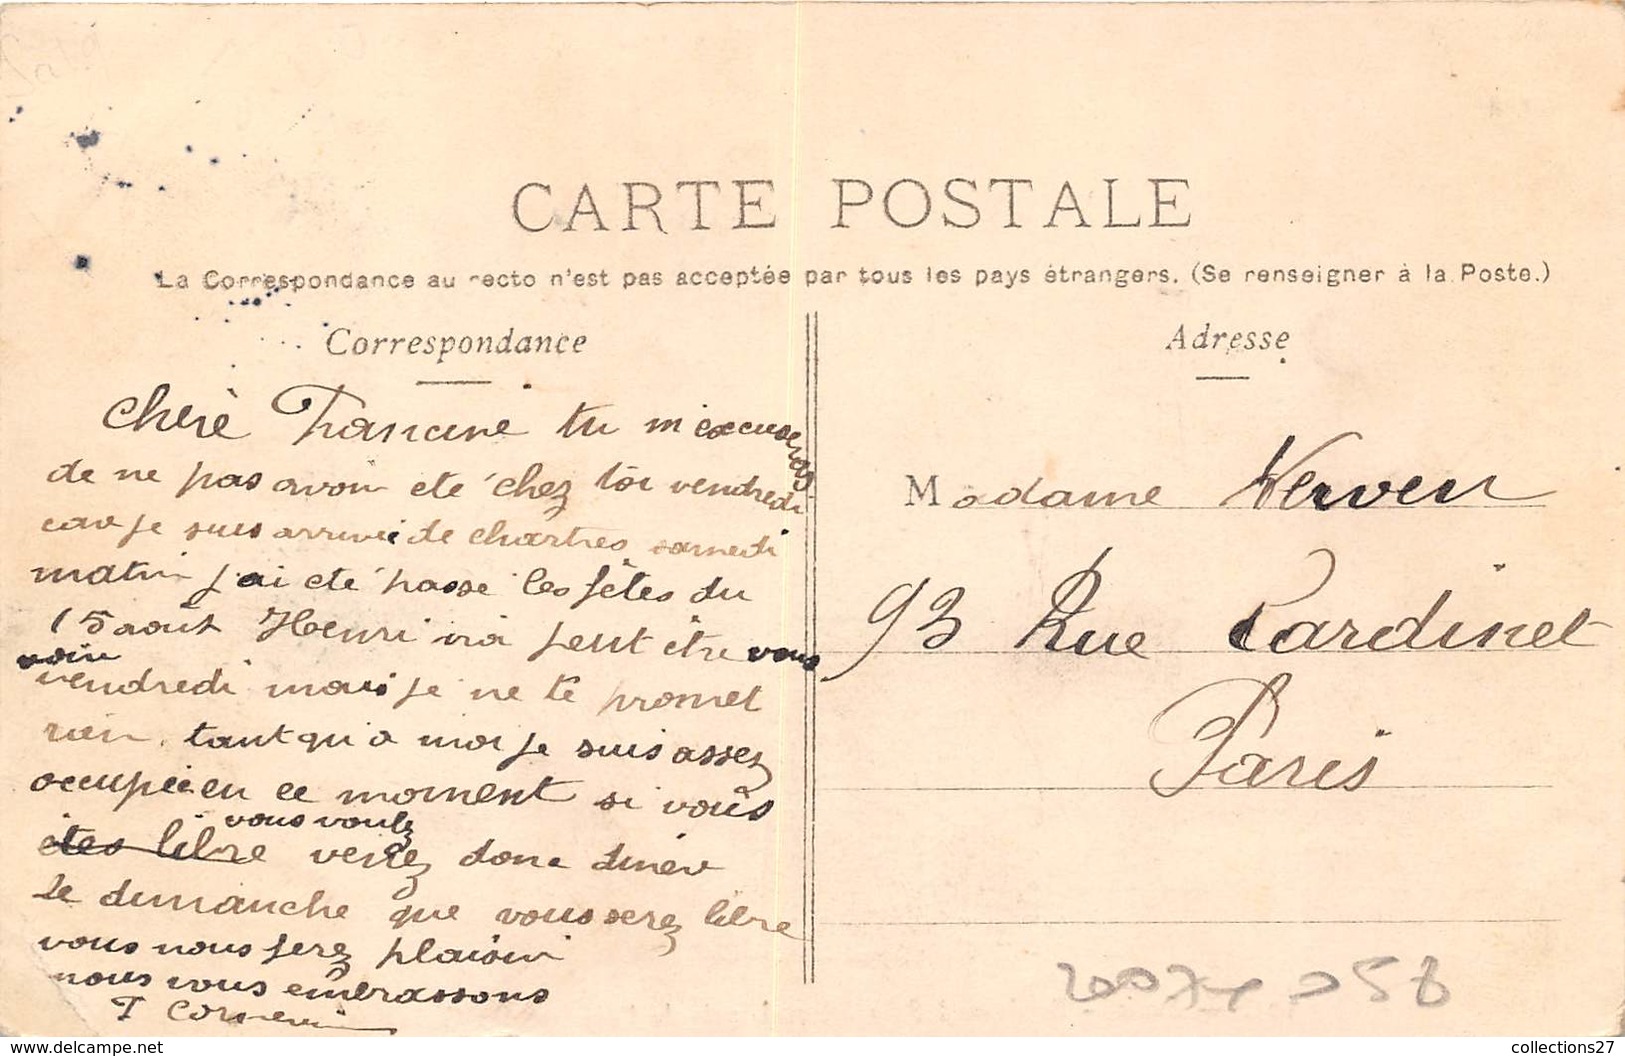 CARTE POSTALE
La Correspondance au recto n'est pas acceptée par tous les pays étrangers. (Se renseigner à la Poste.)
Correspondance
chère Francine tu m'excuseras
de ne pas avoir été chez toi vendredi
car je suis arrivée de chartres samedi
matin j'ai été passé les fêtes du
15 août Henri ira peut être vous
voir
vendredi mais je ne te promet
rien, tant qu'a moi je suis assez
occupée en ce moment si vous
vous voulez
êtes libre venez donc diner
le dimanche que vous serez libre
vous nous ferez plaisir
nous vous embrassons
Adresse
Madame Nerven
93 Rue Cardinet
Paris
collections27
www.delcampe.net